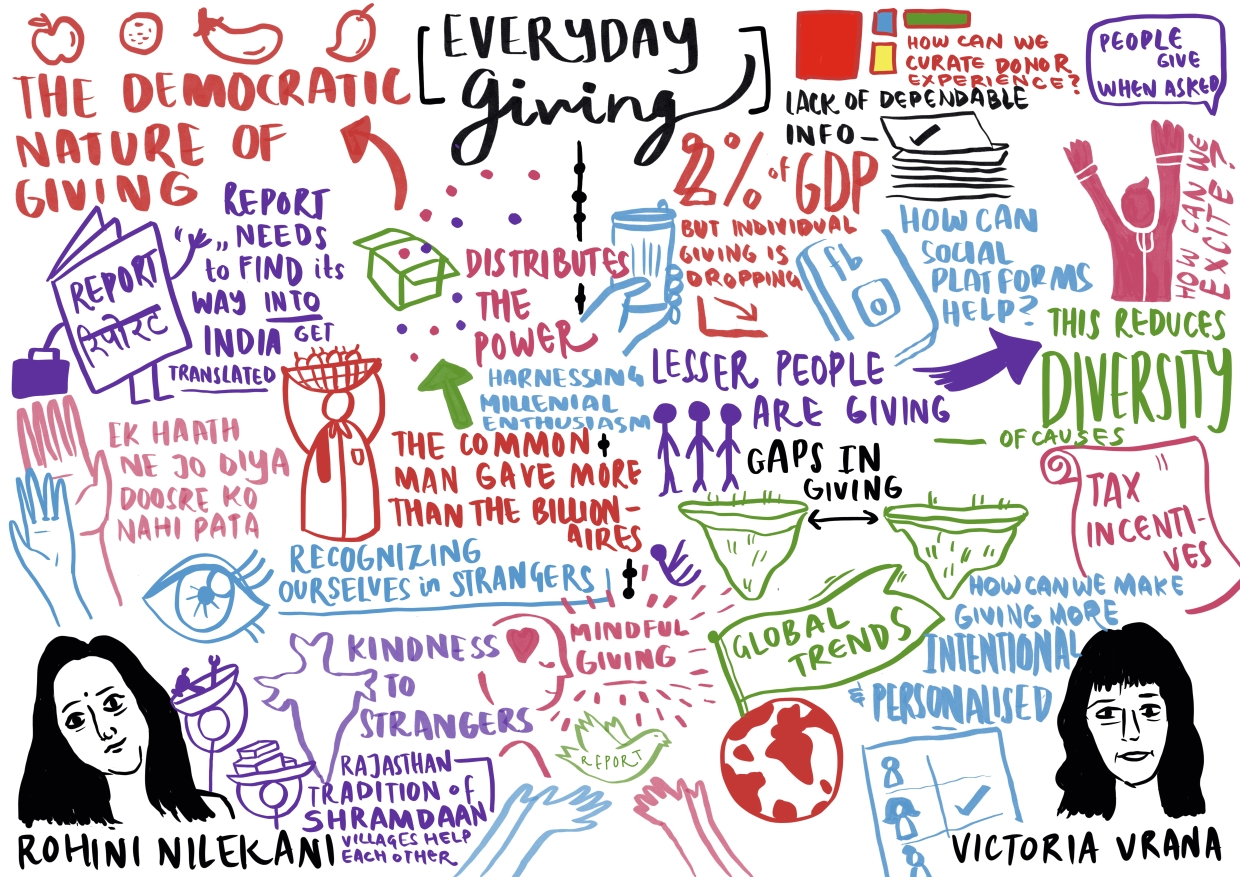 EVERYDAY
giving
THE DEMOCRATIC
NATURE OF
GIVING
REPORT
NEEDS
to FIND its
WAY INTO
INDIA GET
TRANSLATED
REPORT
रिपोरट
DISTRIBUTES
THE
POWER
HARNESSING
MILLENIAL
ENTHUSIASM
THE COMMON
MAN GAVE MORE
THAN THE BILLION-
AIRES
EK HAATH
NE JO DIYA
DOOSRE KO
NAHI PATA
RECOGNIZING
OURSELVES in STRANGERS
KINDNESS
TO
STRANGERS
MINDFUL
GIVING
RAJASTHAN
TRADITION of
SHRAMDAAN
VILLAGES HELP
EACH OTHER
REPORT
ROHINI NILEKANI
HOW CAN WE
CURATE DONOR
EXPERIENCE?
PEOPLE
GIVE
WHEN ASKED
LACK OF DEPENDABLE
INFO-
2% of GDP
BUT INDIVIDUAL
GIVING IS
DROPPING
fb
HOW CAN
SOCIAL
PLATFORMS
HELP?
HOW CAN WE
EXCITE?
LESSER PEOPLE
ARE GIVING
THIS REDUCES
DIVERSITY
OF CAUSES
GAPS IN
GIVING
TAX
INCENTI-
VES
GLOBAL
TRENDS
HOW CAN WE MAKE
GIVING MORE
INTENTIONAL
& PERSONALISED
VICTORIA VRANA